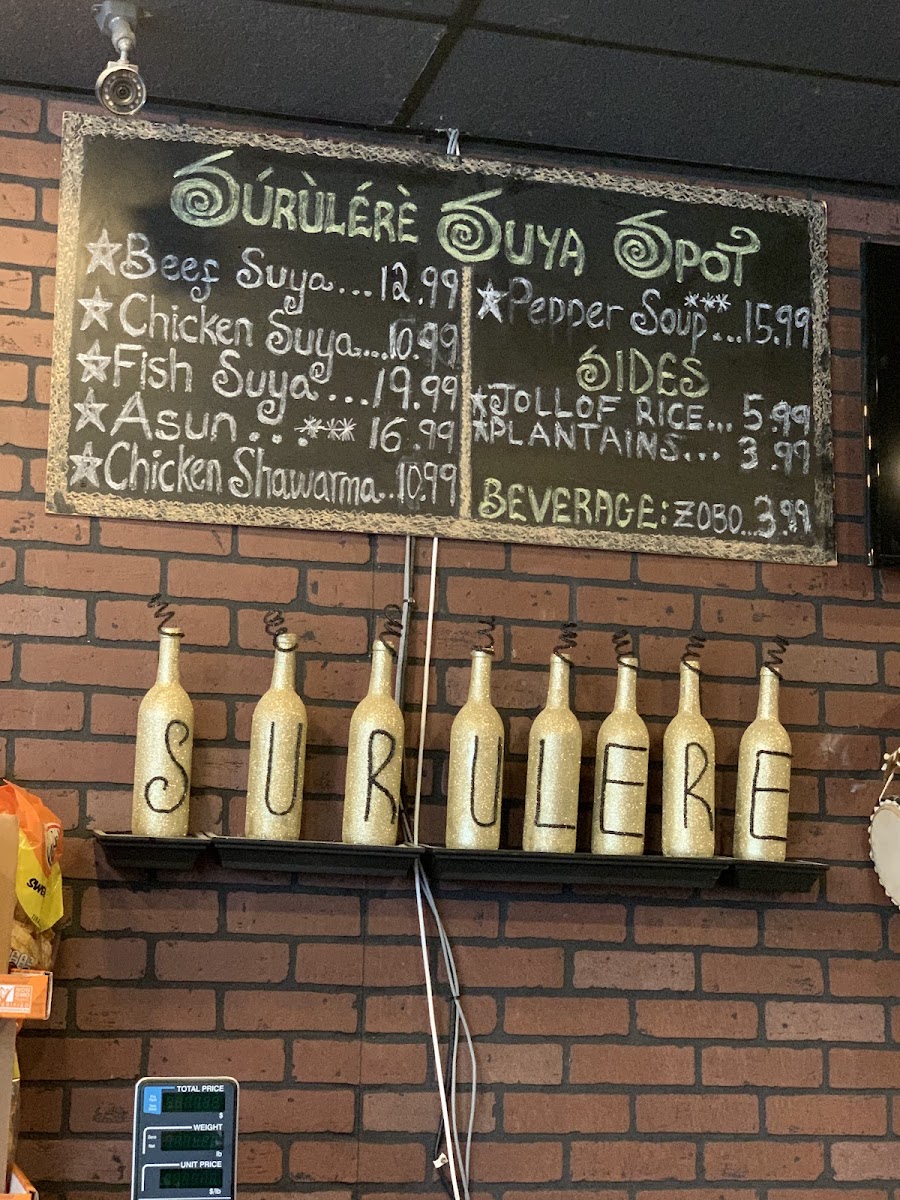 SÚRÙLÉRÈ SUYA SPOT
☆Beef Suya...12.99
☆Chicken Suya....10.99
☆Fish Suya...19.99
☆Asun...*** 16.99
☆Chicken Shawarma..10.99
☆Pepper Soup***...15.99
SIDES
☆JOLLOF RICE... 5.99
☆PLANTAINS... 3.99
BEVERAGE: ZOBO...3.99
SURULERE
TOTAL PRICE
$
WEIGHT
lb
UNIT PRICE
$/lb